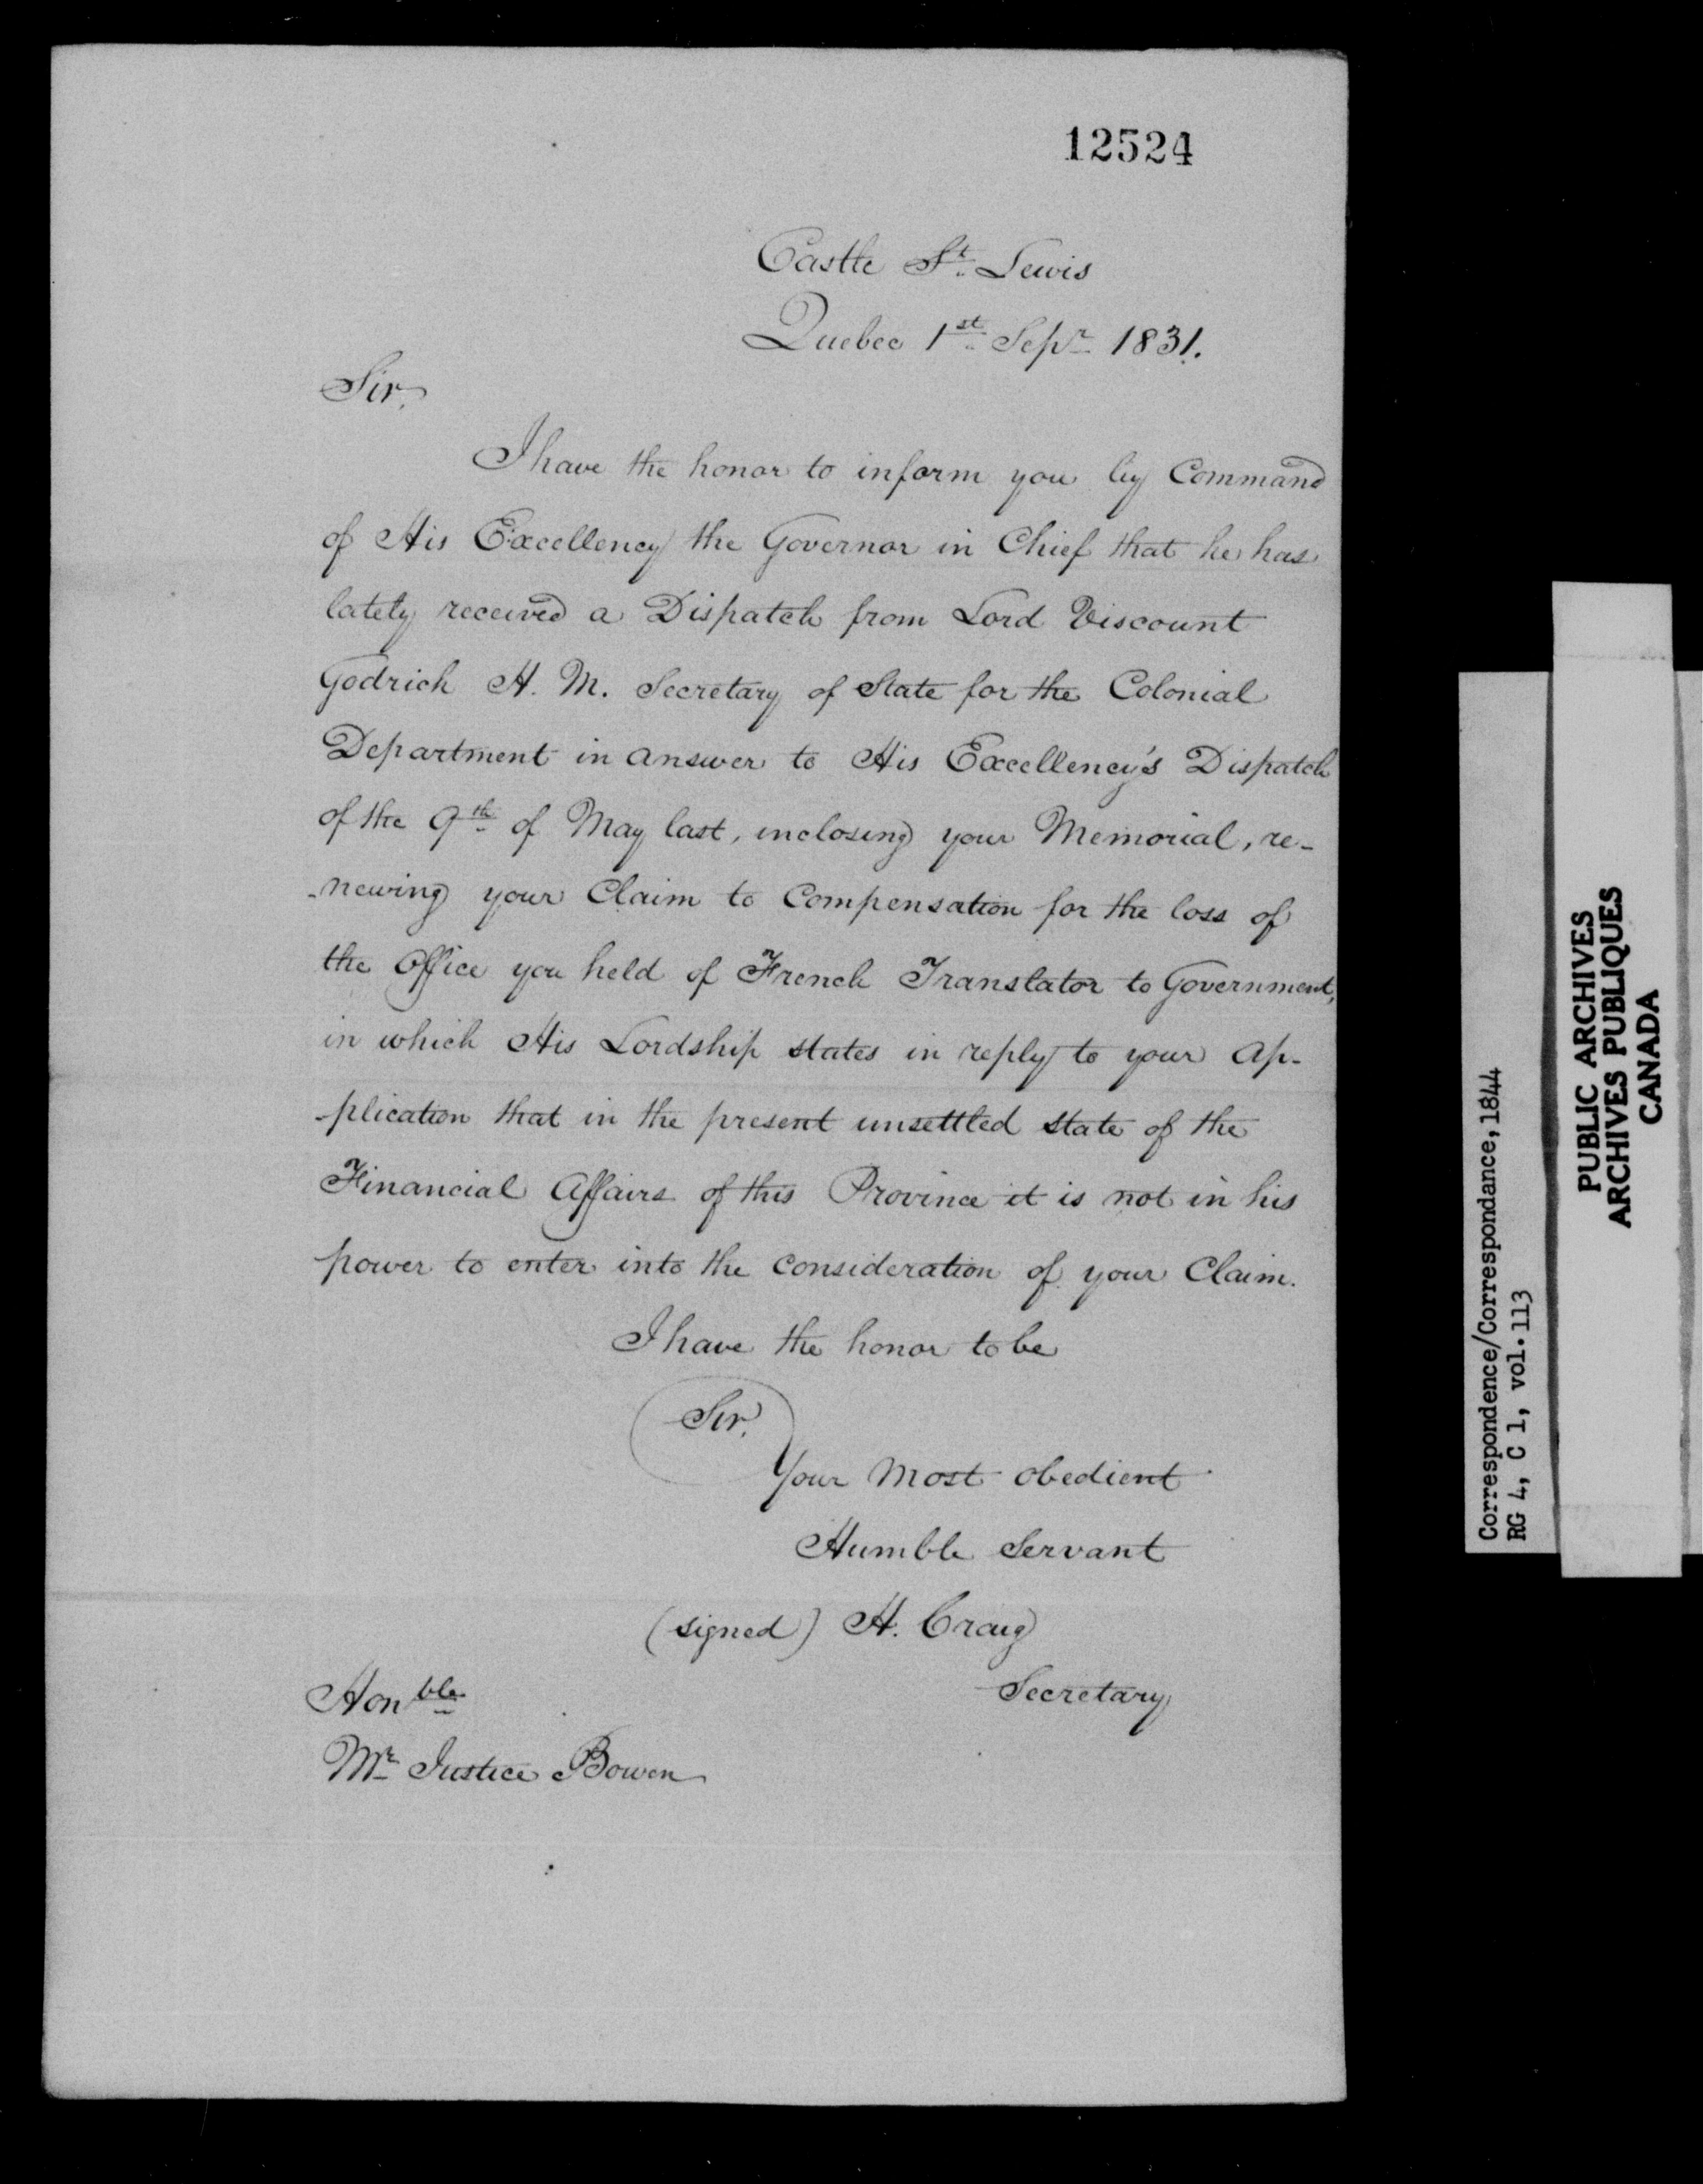 12524
Castle St. Lewis
Quebec 1st Sepr 1831.
Sir,
I have the honor to inform you by Command
of His Excellency the Governor in Chief that he has
lately received a Dispatch from Lord Viscount
Godrich H. M. Secretary of State for the Colonial
Department in answer to His Excellency's Dispatch
of the 9th of May last, inclosing your Memorial, re-
-newing your Claim to Compensation for the loss of
the Office you held of French Translator to Government,
in which His Lordship states in reply to your ap-
-plication that in the present unsettled state of the
Financial Affairs of this Province it is not in his
power to enter into the consideration of your Claim.
I have the honor to be
Sir,
Your most obedient
Humble Servant
(signed) H. Craig
Secretary
Honble
Mr Justice Bowen
Correspondence/Correspondance, 1844
RG 4, C 1, vol. 113
PUBLIC ARCHIVES
ARCHIVES PUBLIQUES
CANADA